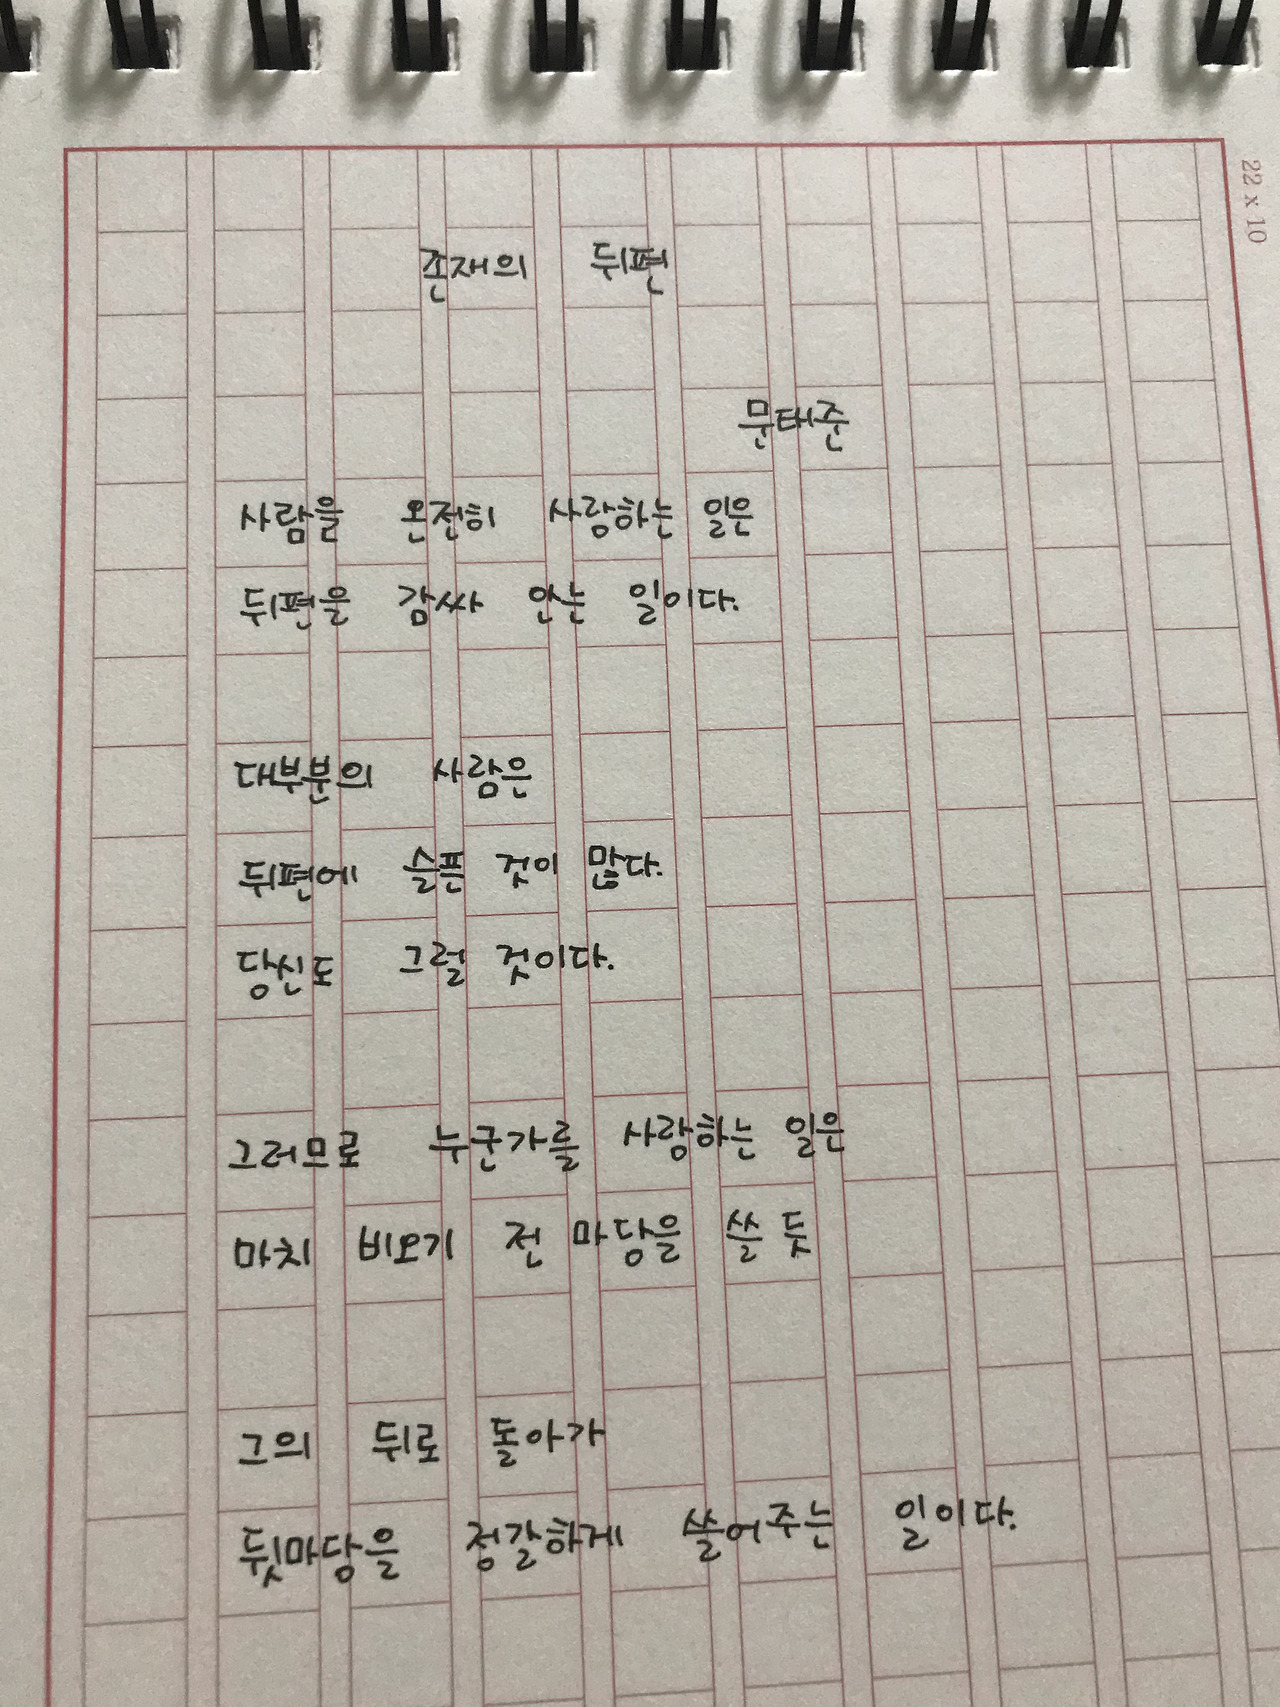 22 x 10
존재의 뒤편
문태준
사람을 온전히 사랑하는 일은
뒤편을 감싸 안는 일이다.
대부분의 사람은
뒤편에 슬픈 것이 많다.
당신도 그럴 것이다.
그러므로 누군가를 사랑하는 일은
마치 비오기 전 마당을 쓸 듯
그의 뒤로 돌아가
뒷마당을 정갈하게 쓸어주는 일이다.